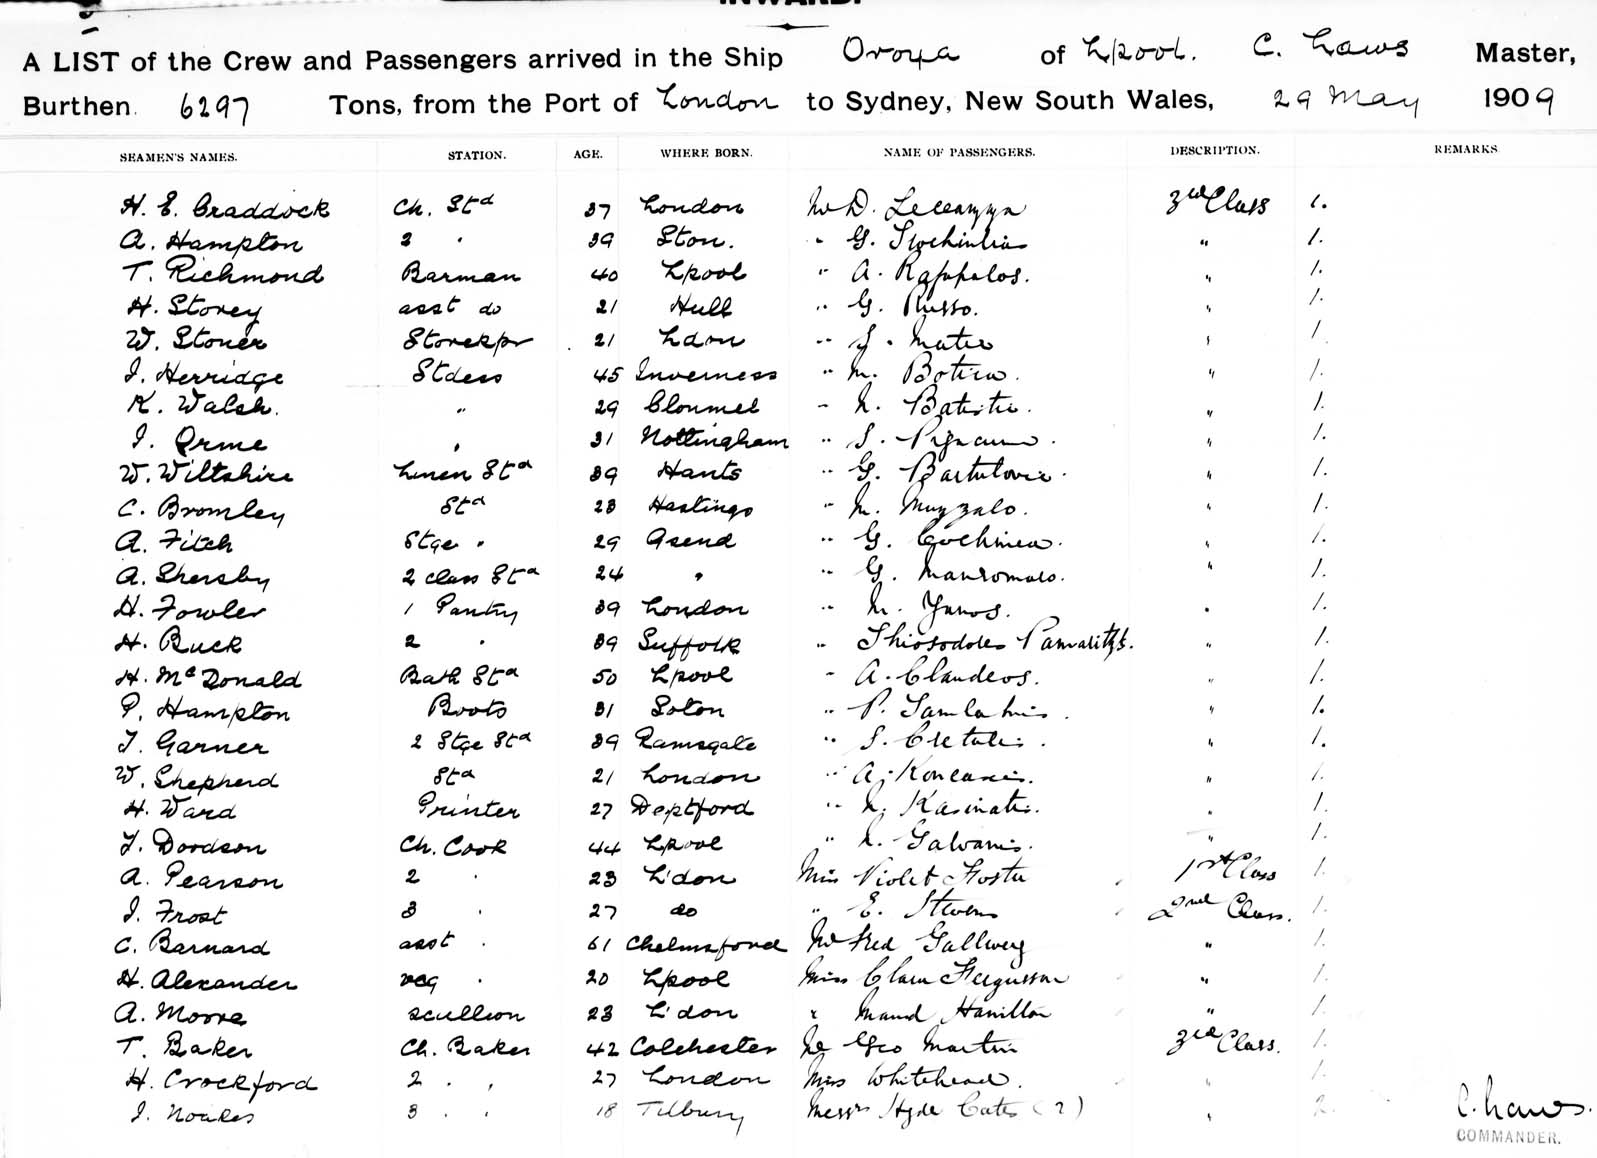 INWARD.
A LIST of the Crew and Passengers arrived in the Ship Oroya of Lpool. C. Laws Master,
Burthen 6297 Tons, from the Port of London to Sydney, New South Wales, 29 May 1909
SEAMEN'S NAMES. STATION. AGE. WHERE BORN. NAME OF PASSENGERS. DESCRIPTION. REMARKS
H. E. Craddock Ch. Std 37 London Mr D. 3rd Class 1.
A. Hampton 2 " 39 Ston. " G. " 1.
T. Richmond Barman 40 Lpool " A. Rafopalos. " 1.
H. Storey asst do 21 Hull " G. Russo. " 1.
W. Stoner Storekpr 21 Ldon " " 1.
J. Herridge Stdess 45 Inverness " M. " 1.
K. Walsh. " 29 Clonmel " N. " 1.
J. Orme " 31 Nottingham " S. " 1.
W. Wiltshire Linen Std 39 Hants " G. Bartulovic. " 1.
C. Bromley Std 23 Hastings " M. Muzzalo. " 1.
A. Fitch Stge " 29 Gsend " G. " 1.
A. Shersby 2 class Std 24 " " G. " 1.
H. Fowler 1 Pantry 39 London " " 1.
H. Buck 2 " 39 Suffolk " " 1.
H. McDonald Bath Std 50 Lpool " A. Clauderos. " 1.
P. Hampton Boots 31 Soton " P. " 1.
J. Garner 2 Stge Std 39 Ramsgate " " 1.
W. Shepherd Std 21 London " A. " 1.
H. Ward Printer 27 Deptford " N. Kasinatis. " 1.
J. Doodson Ch. Cook 44 Lpool " N. Galvanis. " 1.
A. Pearson 2 " 23 L'don Miss Violet Foster 1st Class 1.
J. Frost 3 " 27 do " E. Stevens 2nd Class. 1.
C. Barnard asst " 61 Chelmsford Mr Fred Gallwey " 1.
H. Alexander veg " 20 Lpool Miss Clara Fergusson " 1.
A. Moore scullion 23 L'don " Maud Hamilton " 1.
T. Baker Ch. Baker 42 Colchester Mr Geo Martin 3rd Class. 1.
H. Crockford 2 " " 27 London Miss Whitehead. " 1.
J. Noakes 3 " " 18 Tilbury Messrs Hyde Cates (2) " 2.
C. Laws.
COMMANDER.